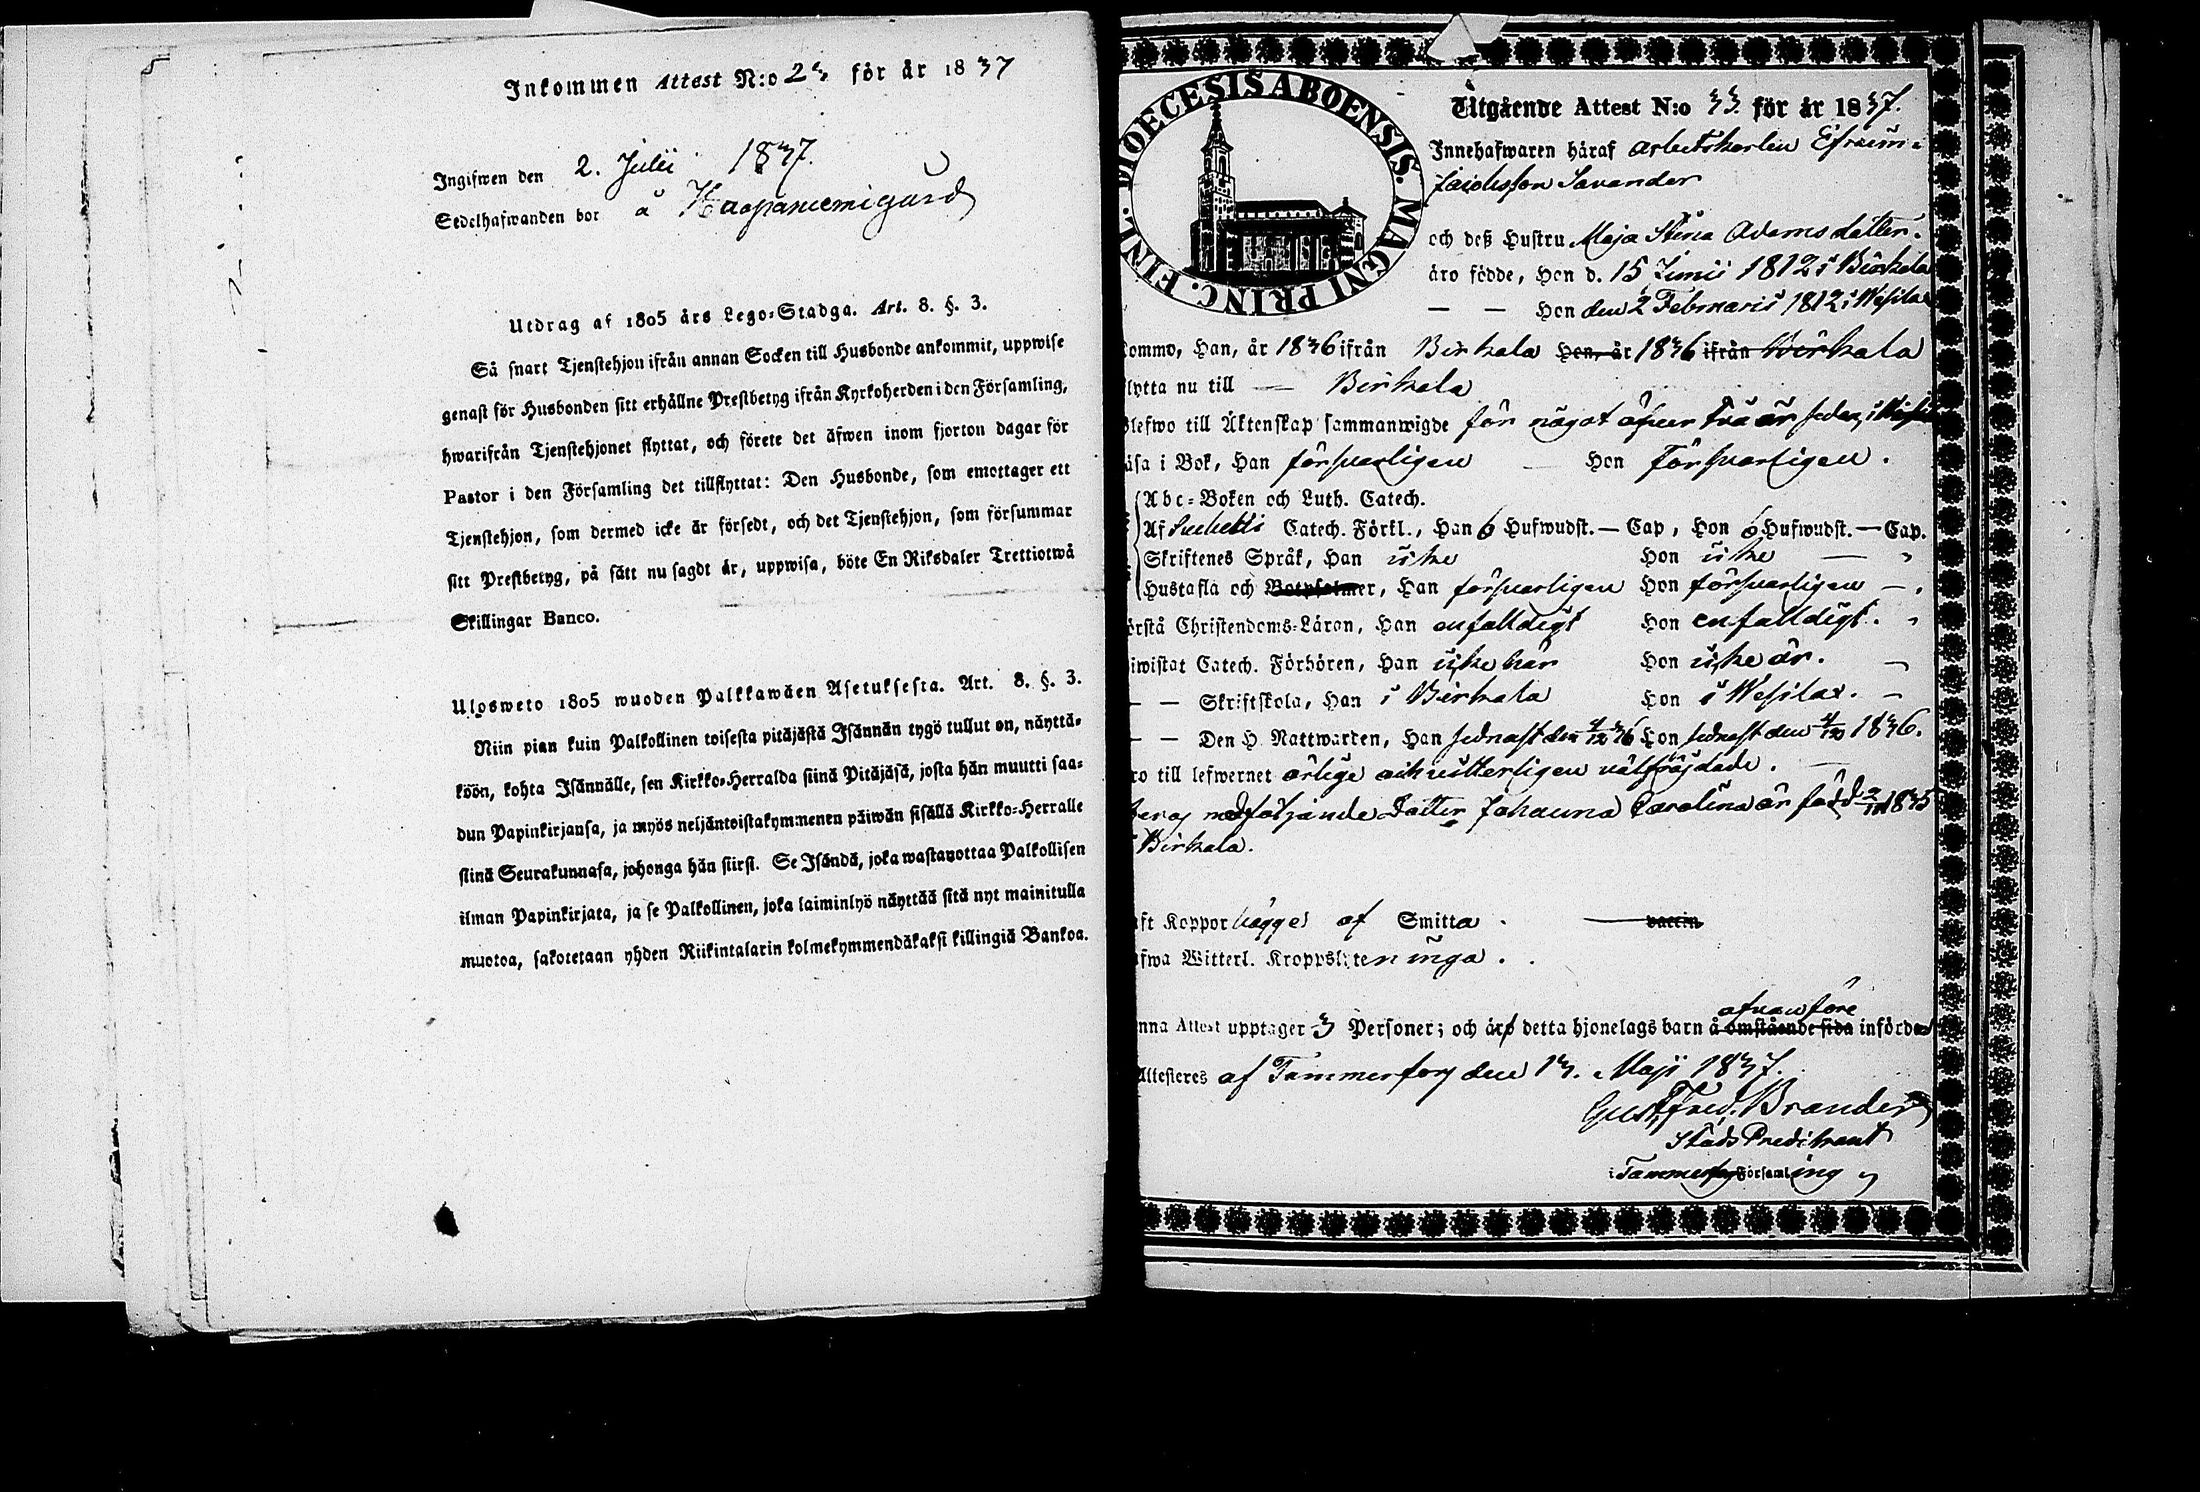 Inkommen Attest N:o 23 för år 1837
Ingifwen den 2. Julii 1837.
Sedelhafwanden bor å Haapaniemi gård
Utdrag af 1805 års Lego-Stadga. Art. 8. §. 3.
Så snart Tjenstehjon ifrån annan Socken till Husbonde ankommit, uppwise
genast för Husbonden sitt erhållne Prestbetyg ifrån Kyrkoherden i den Församling,
hwarifrån Tjenstehjonet flyttat, och förete det äfwen inom fjorton dagar för
Pastor i den Församling det tillflyttat: Den Husbonde, som emottager ett
Tjenstehjon, som dermed icke är försedt, och det Tjenstehjon, som försummar
sitt Prestbetyg, på sätt nu sagdt är, uppwisa, böte En Riksdaler Trettiotwå
Skillingar Banco.
Ulosweto 1805 wuoden Palkkawäen Asetuksesta. Art. 8. §. 3.
Niin pian kuin Palkollinen toisesta pitäjästä Isännän tygö tullut on, näyttä-
köön, kohta Isännälle, sen Kirkko-Herralda siinä Pitäjäsä, josta hän muutti saa-
dun Papinkirjansa, ja myös neljäntoistakymmenen päiwän sisällä Kirkko-Herralle
siinä Seurakunnasa, johonga hän siirsi. Se Isändä, joka wastanottaa Palkollisen
ilman Papinkirjata, ja se Palkollinen, joka laiminlyö näyttää sitä nyt mainitulla
muotoa, sakotetaan yhden Riikintalarin kolmekymmendäkaksi killingiä Bankoa.
DIOECESIS ABOENSIS. MAGNI PRINC. FINL.
Utgående Attest N:o 33 för år 1837.
Innehafwaren häraf arbetskarlen Efraim
Jacobsson Savander
och deß Hustru Maja Stina Adamsdotter.
äro födde, Han d. 15 Junii 1812 i Birkala
— — Hon den 2 Februarii 1812 i Wesilax
kommo, Han, år 1836 ifrån Birkala Hon, år 1836 ifrån Birkala
flytta nu till — Birkala
Blefwo till Äktenskap sammanwigde för något öfver två år sedan, i
läsa i Bok, Han försvarligen — Hon försvarligen.
Abc-Boken och Luth. Catech.
Af Svebelii Catech. Förkl., Han 6 Hufwudst. — Cap, Hon 6 Hufwudst. — Cap.
Skriftenes Språk, Han icke Hon icke —
Hustafla och Botpsalmer, Han försvarligen Hon försvarligen —
örstå Christendoms-Läran, Han enfaldigt Hon enfaldigt.
iwistat Catech. Förhören, Han icke här Hon icke är. —
— — Skriftskola, Han i Birkala Hon i Wesilax. —
— — Den H. Nattwarden, Han sednast den 4/12 36 Hon sednast den 4/12 1836.
ro till lefwernet ärlige och vitterligen välfräjdade. —
medföljande Dotter Johanna Carolina är född 2/11 1835
i Birkala.
aft Koppor bägge af Smitta. — vaccin
afwa Witterl. Kroppslyten inga.
nna Attest upptager 3 Personer; och är detta hjonelags barn å omstående sida införde
ofvanföre
Attesteres af Tammerfors den 13. Maji 1837.
Gust. Fred. Brander
Stads Predikant
i Tammerfors Församling